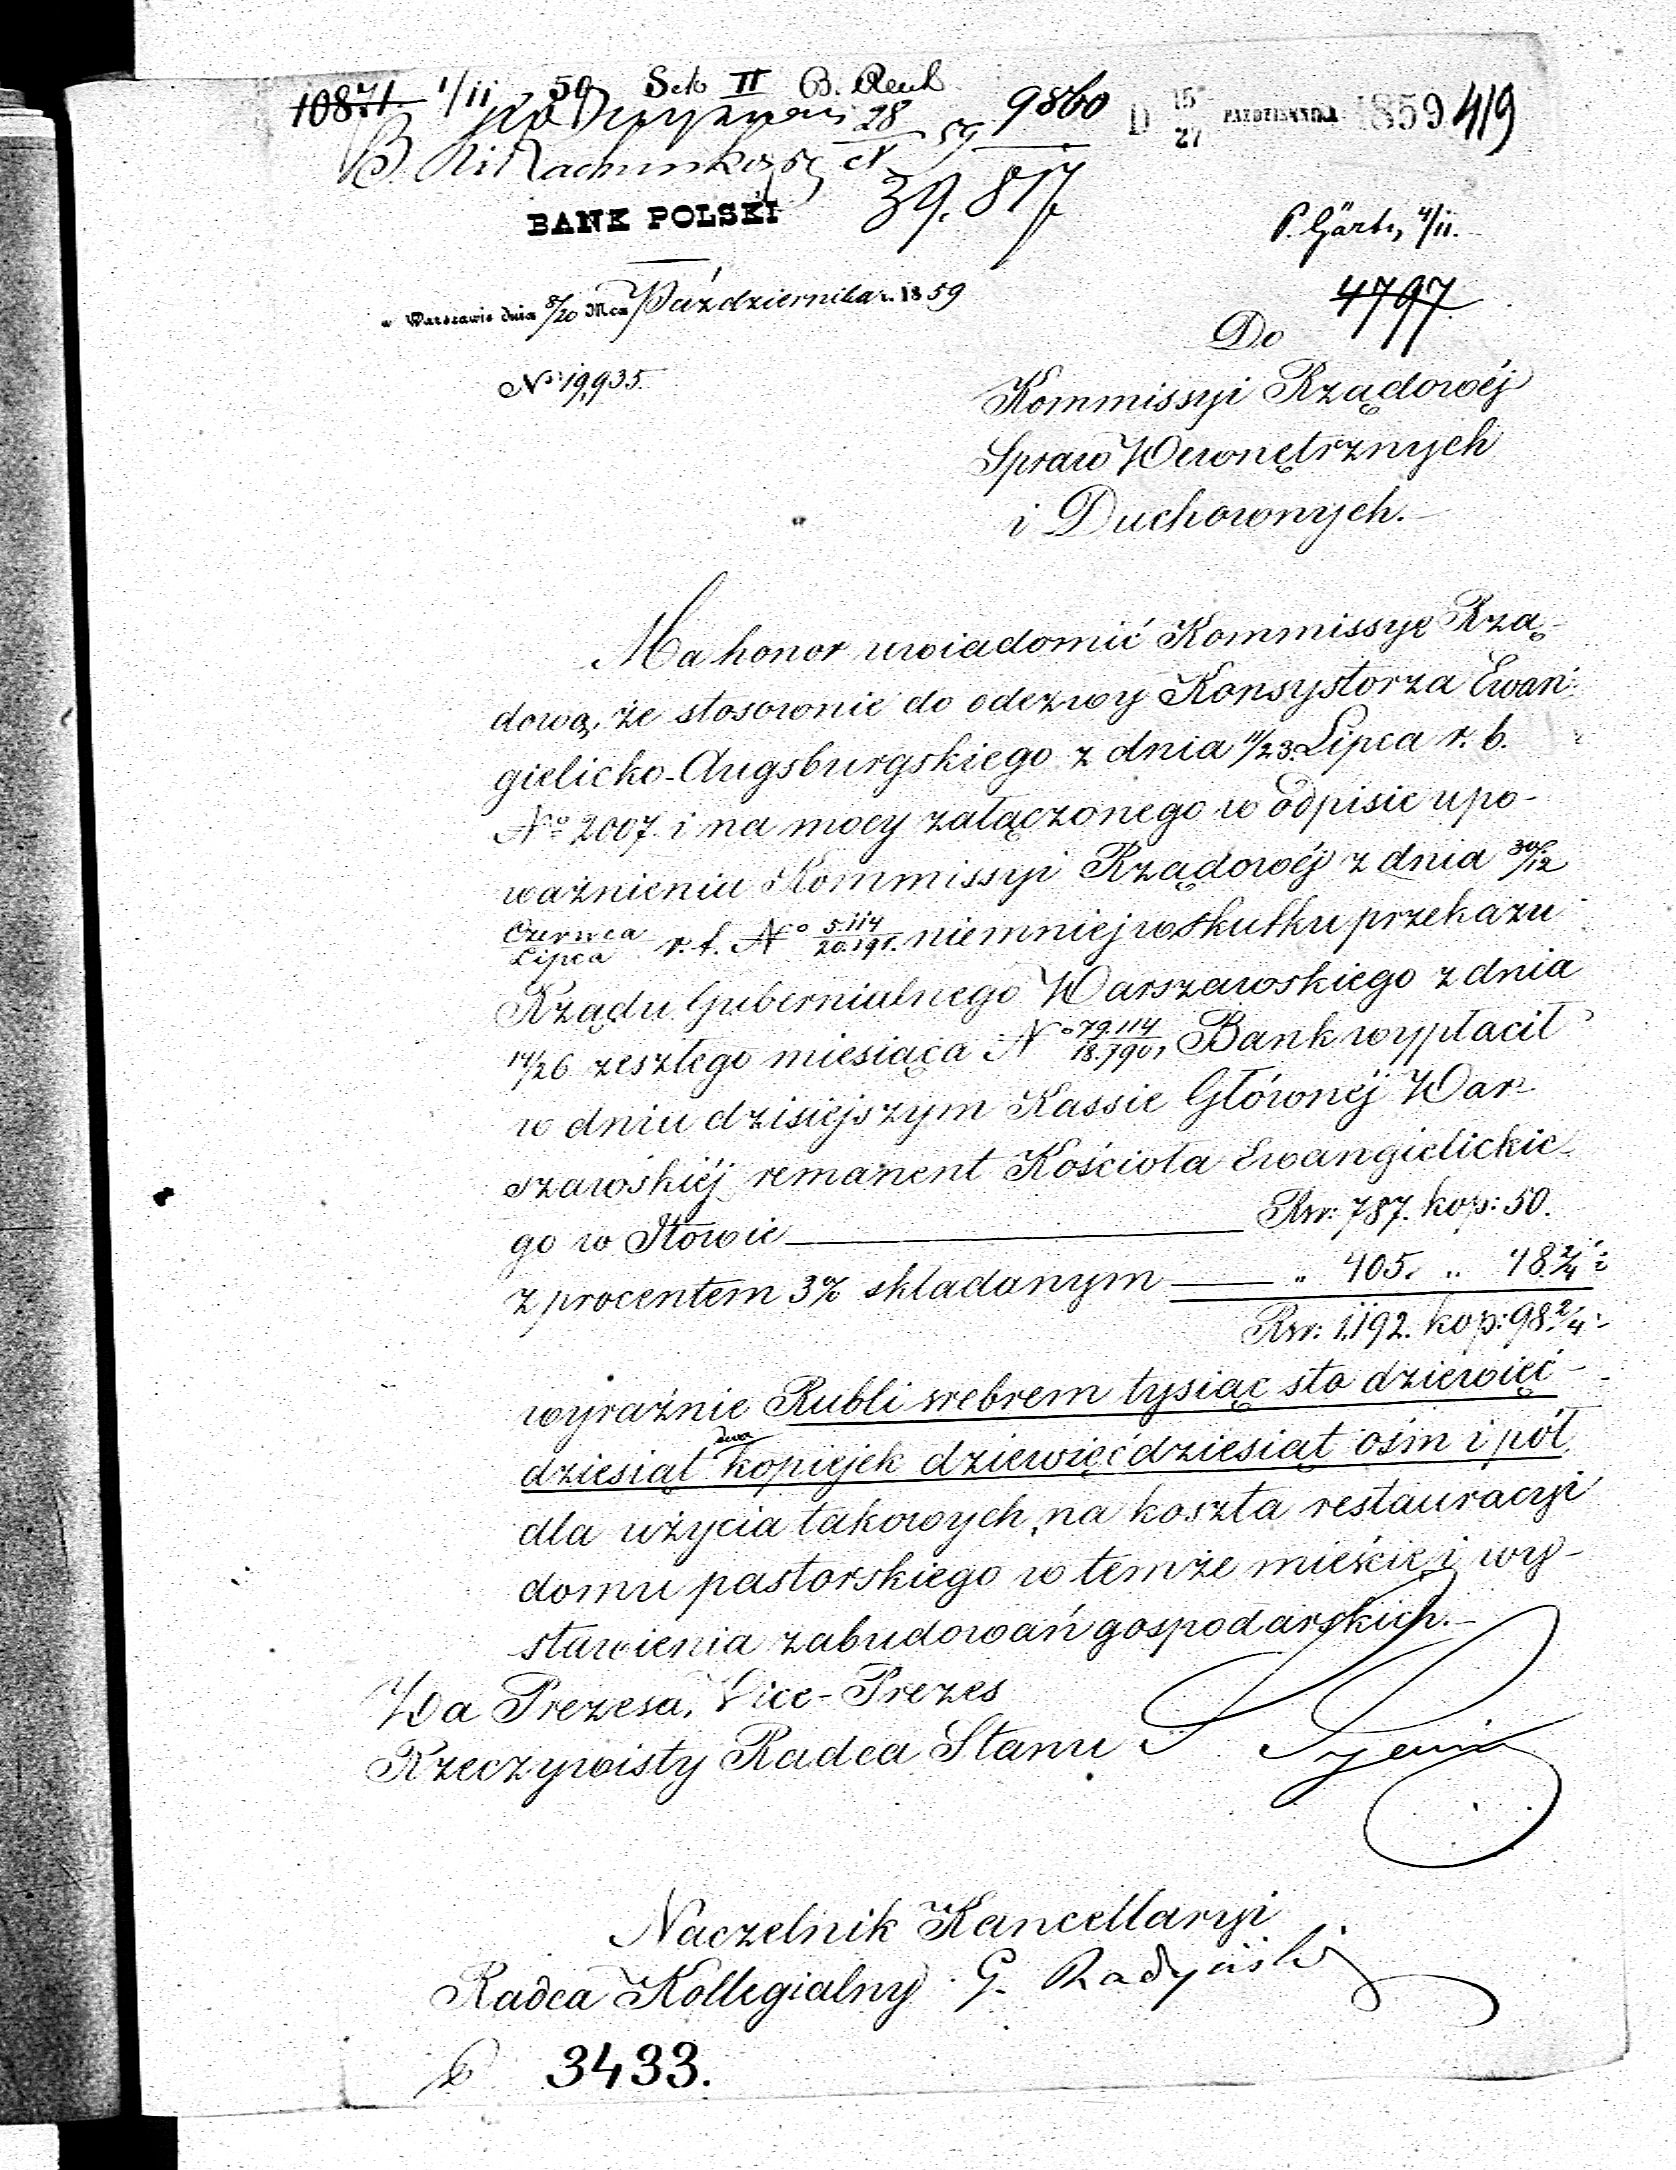 10871. 1/11 59 Sek II B.
28 59 9860 D 15/27 PAZDZIERNIKA 1859 419
39.817
BANK POLSKI
P. Gärt., 4/11.
w Warszawie dnia 8/20 Mca Października r. 1859
4797
Do
No 19,935
Kommissyi Rządowéj
Spraw Wewnętrznych
i Duchownych.
Ma honor uwiadomić Kommissyę Rzą-
dową, że stosownie do odezwy Konsystorza Ewan-
gielicko-Augsburgskiego z dnia 11/23 Lipca r. b.
No 2007 i na mocy załączonego w odpisie upo-
ważnienia Kommissyi Rządowéj z dnia 30/12
Czerwca/Lipca r. b. No 5.114/20.191. niemniej w skutku przekazu
Rządu Gubernialnego Warszawskiego z dnia
14/26 zeszłego miesiąca No 79.114/18.790, Bank wypłacił
w dniu dzisiejszym Kassie Głównéj War-
szawskiéj remanent Kościoła Ewangielickie-
go w Iłowie Rsr: 787. kop: 50.
z procentem 3% składanym „ 405. „ 48 2/4
Rsr: 1,192. kop: 98 2/4
wyraźnie Rubli srebrem tysiąc sto dziewięć-
dziesiąt dwa kopiejek dziewięćdziesiąt ośm i pół,
dla użycia takowych, na koszta restauracyi
domu pastorskiego w temże mieście i wy-
stawienia zabudowań gospodarskich.
Wa Prezesa, Vice-Prezes
Rzeczywisty Radca Stanu
Naczelnik Kancellaryi
Radca Kollegialny G. Radyński
3433.